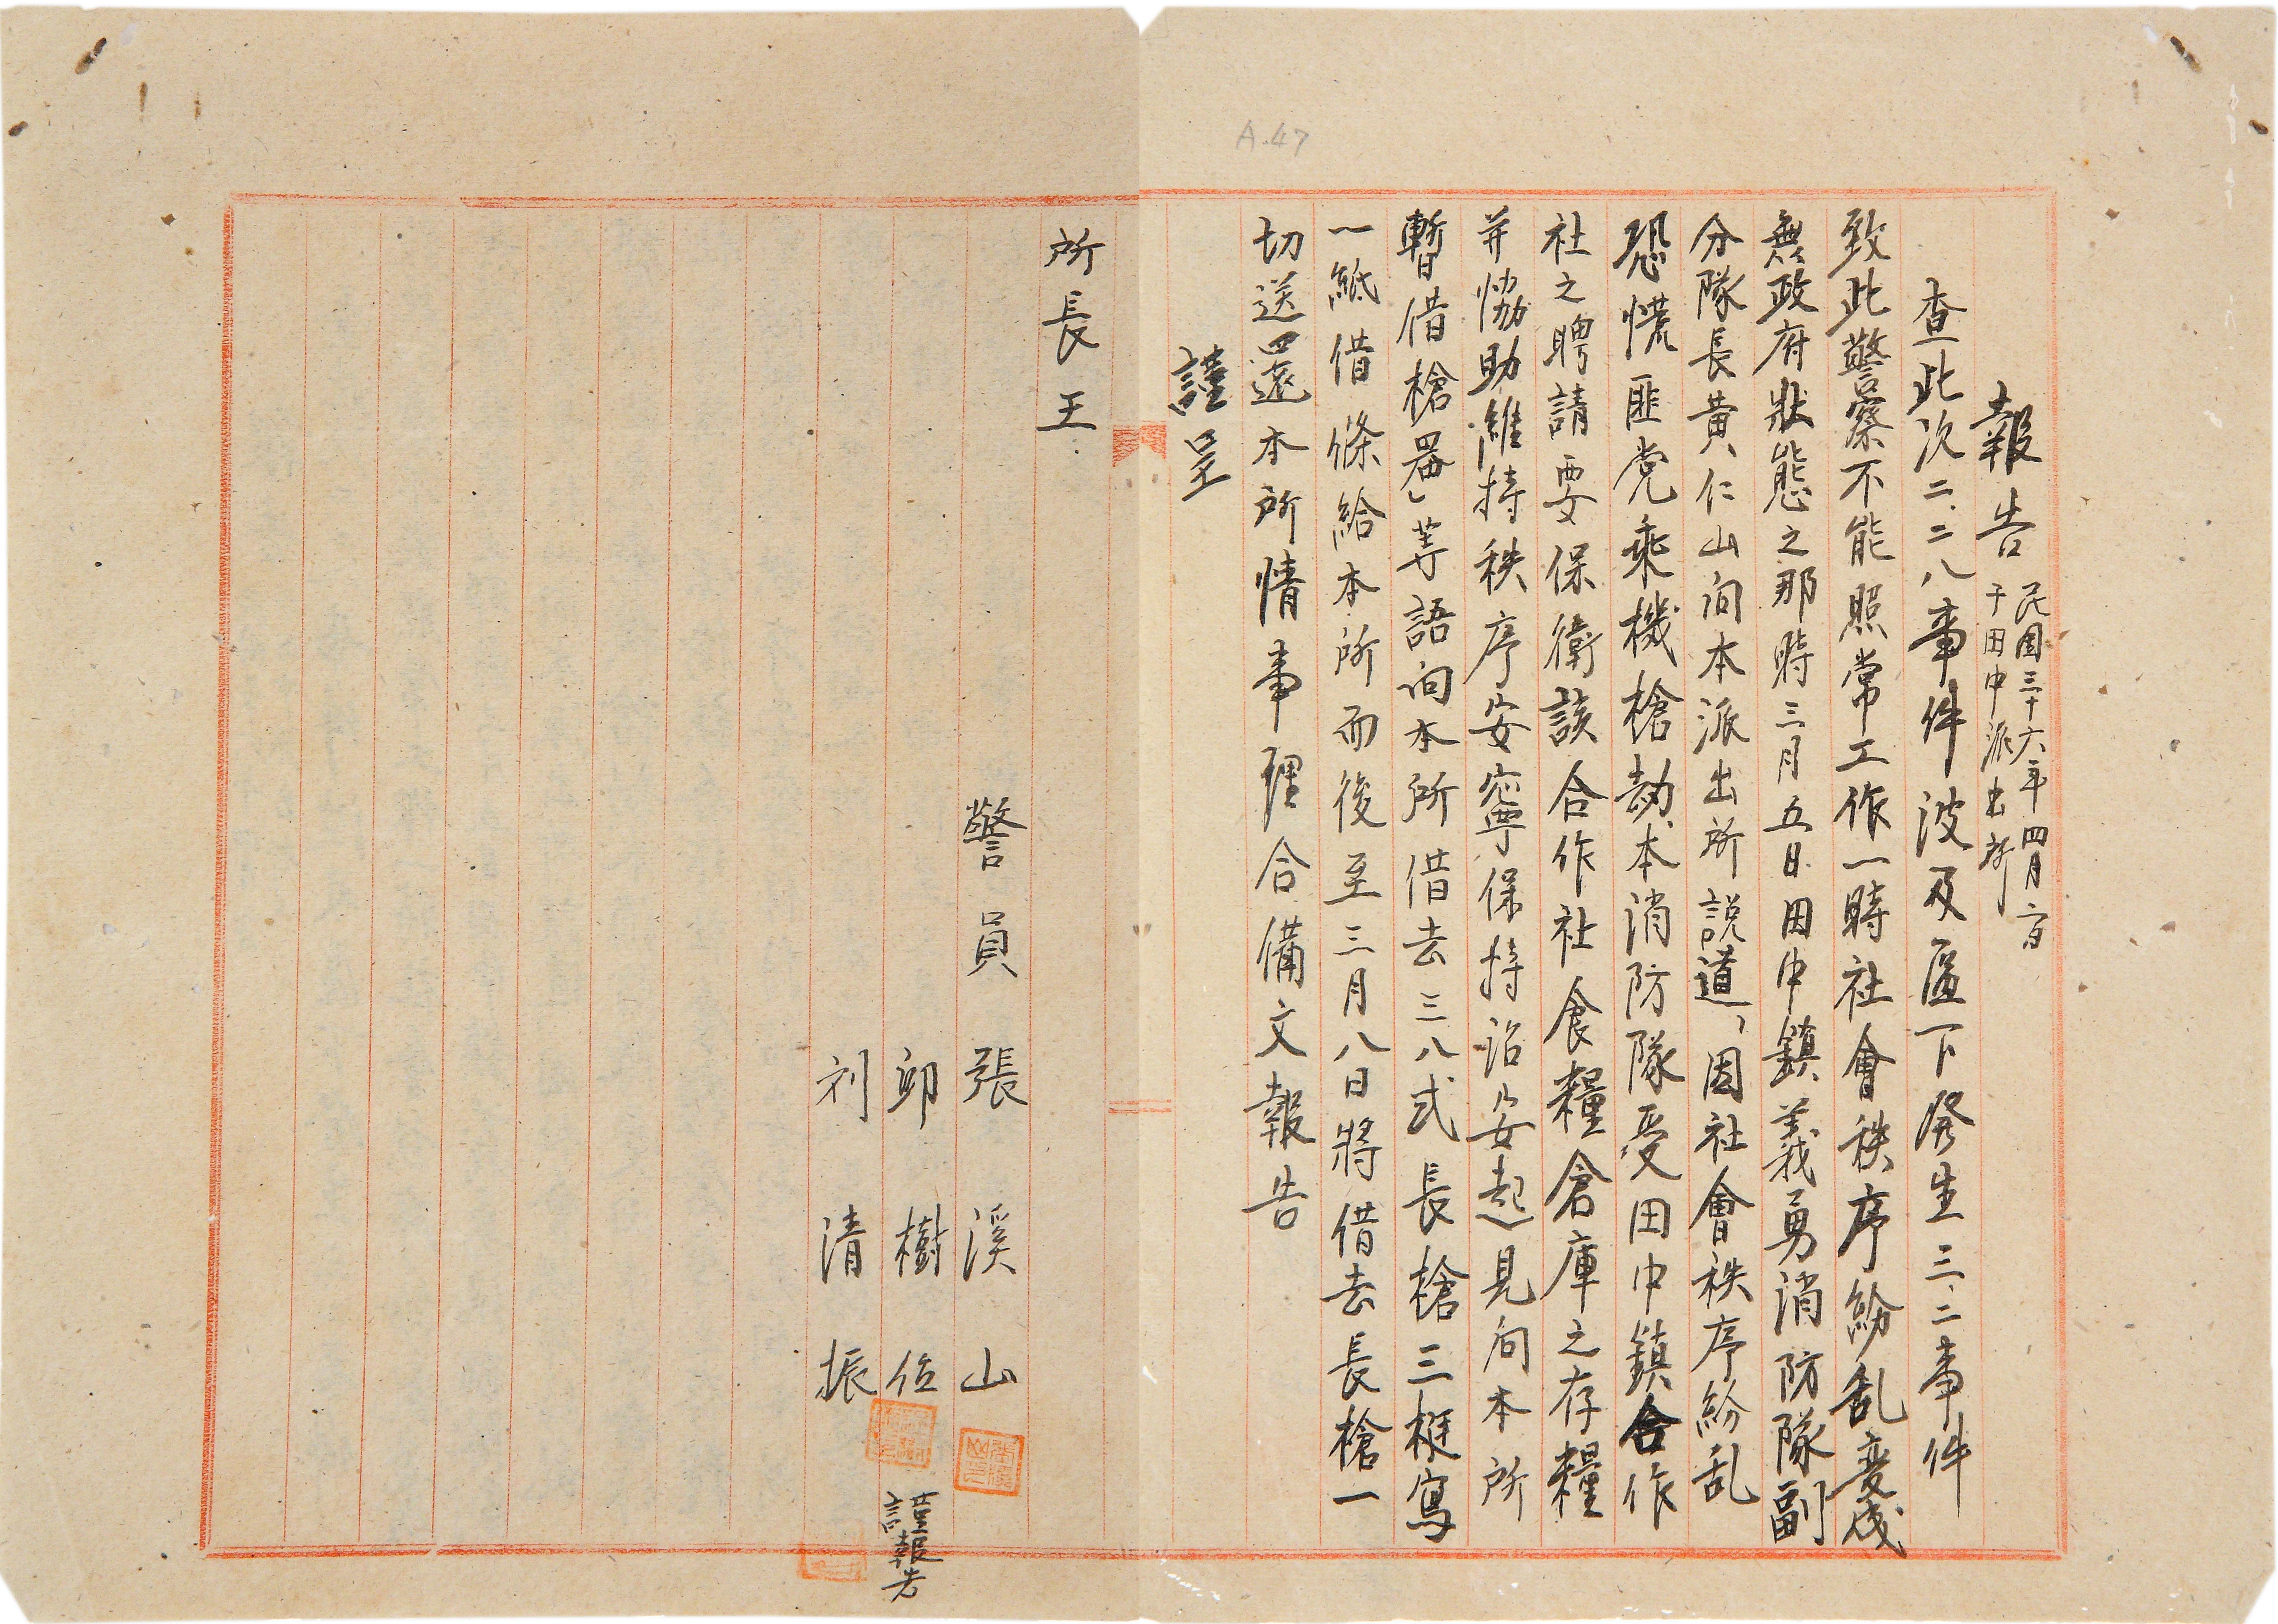 A.47
報告 民国三十六年四月六日
于田中派出所
查此次二、二八事件波及區下發生三、二事件
致此警察不能照常工作一時社會秩序紛乱変成
無政府狀態之那時三月五日田中鎮義勇消防隊副
分隊長黄仁山向本派出所説道、因社會秩序紛乱
恐慌匪党乘機槍劫本消防隊受田中鎮合作
社之聘請要保衛該合作社食糧倉庫之存糧
并協助維持秩序安寧保持治安起見向本所
暫借槍器」等語向本所借去三八式長槍三梃寫
一紙借條給本所而後至三月八日將借去長槍一
切送還本所情事理合備文報告
謹呈
所長王
警員張溪山
邱樹位
刘清振
謹報告